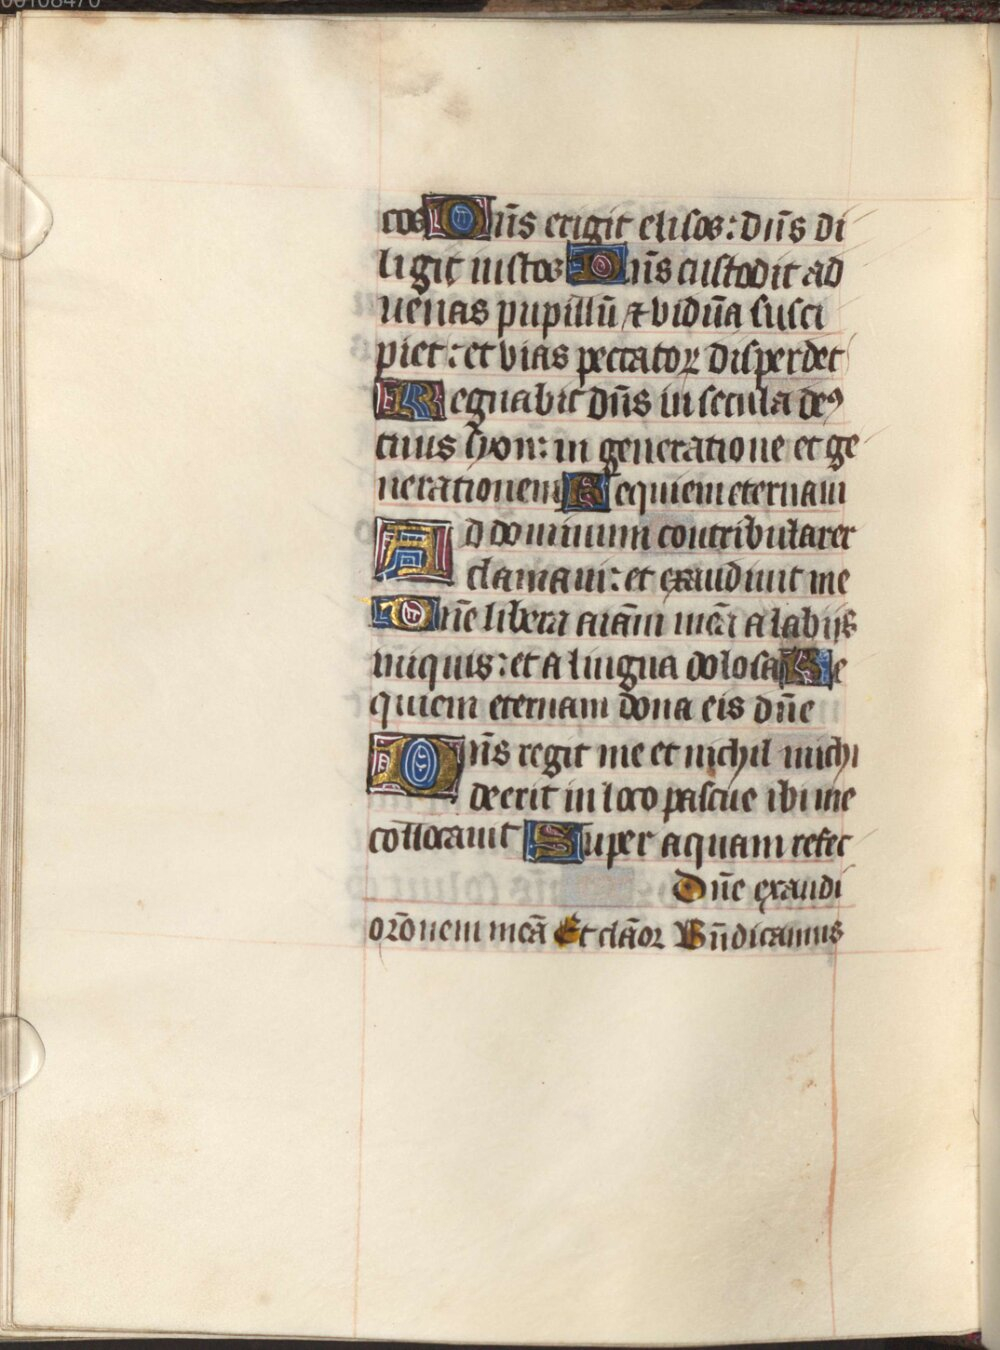 cos Dn̄s erigit elisos: dn̄s di
ligit iustos Dn̄s custodit ad
uenas pupillū ⁊ viduā susci
piet: et vias peccatoꝝ disperdet
Regnabit dn̄s in secula deꝯ
tuus syon: in generatione et ge
nerationem Requiem eternam
Ad dominum cum tribularer
clamaui: et exaudiuit me
Dn̄e libera aīam meā a labijs
iniquis: et a lingua dolosa Re
quiem eternam dona eis dn̄e
Dn̄s regit me et nichil michi
deerit in loco pascue ibi me
collocauit Super aquam refec
Dn̄e exaudi
orōnem meā Et clāor Bn̄dicamus